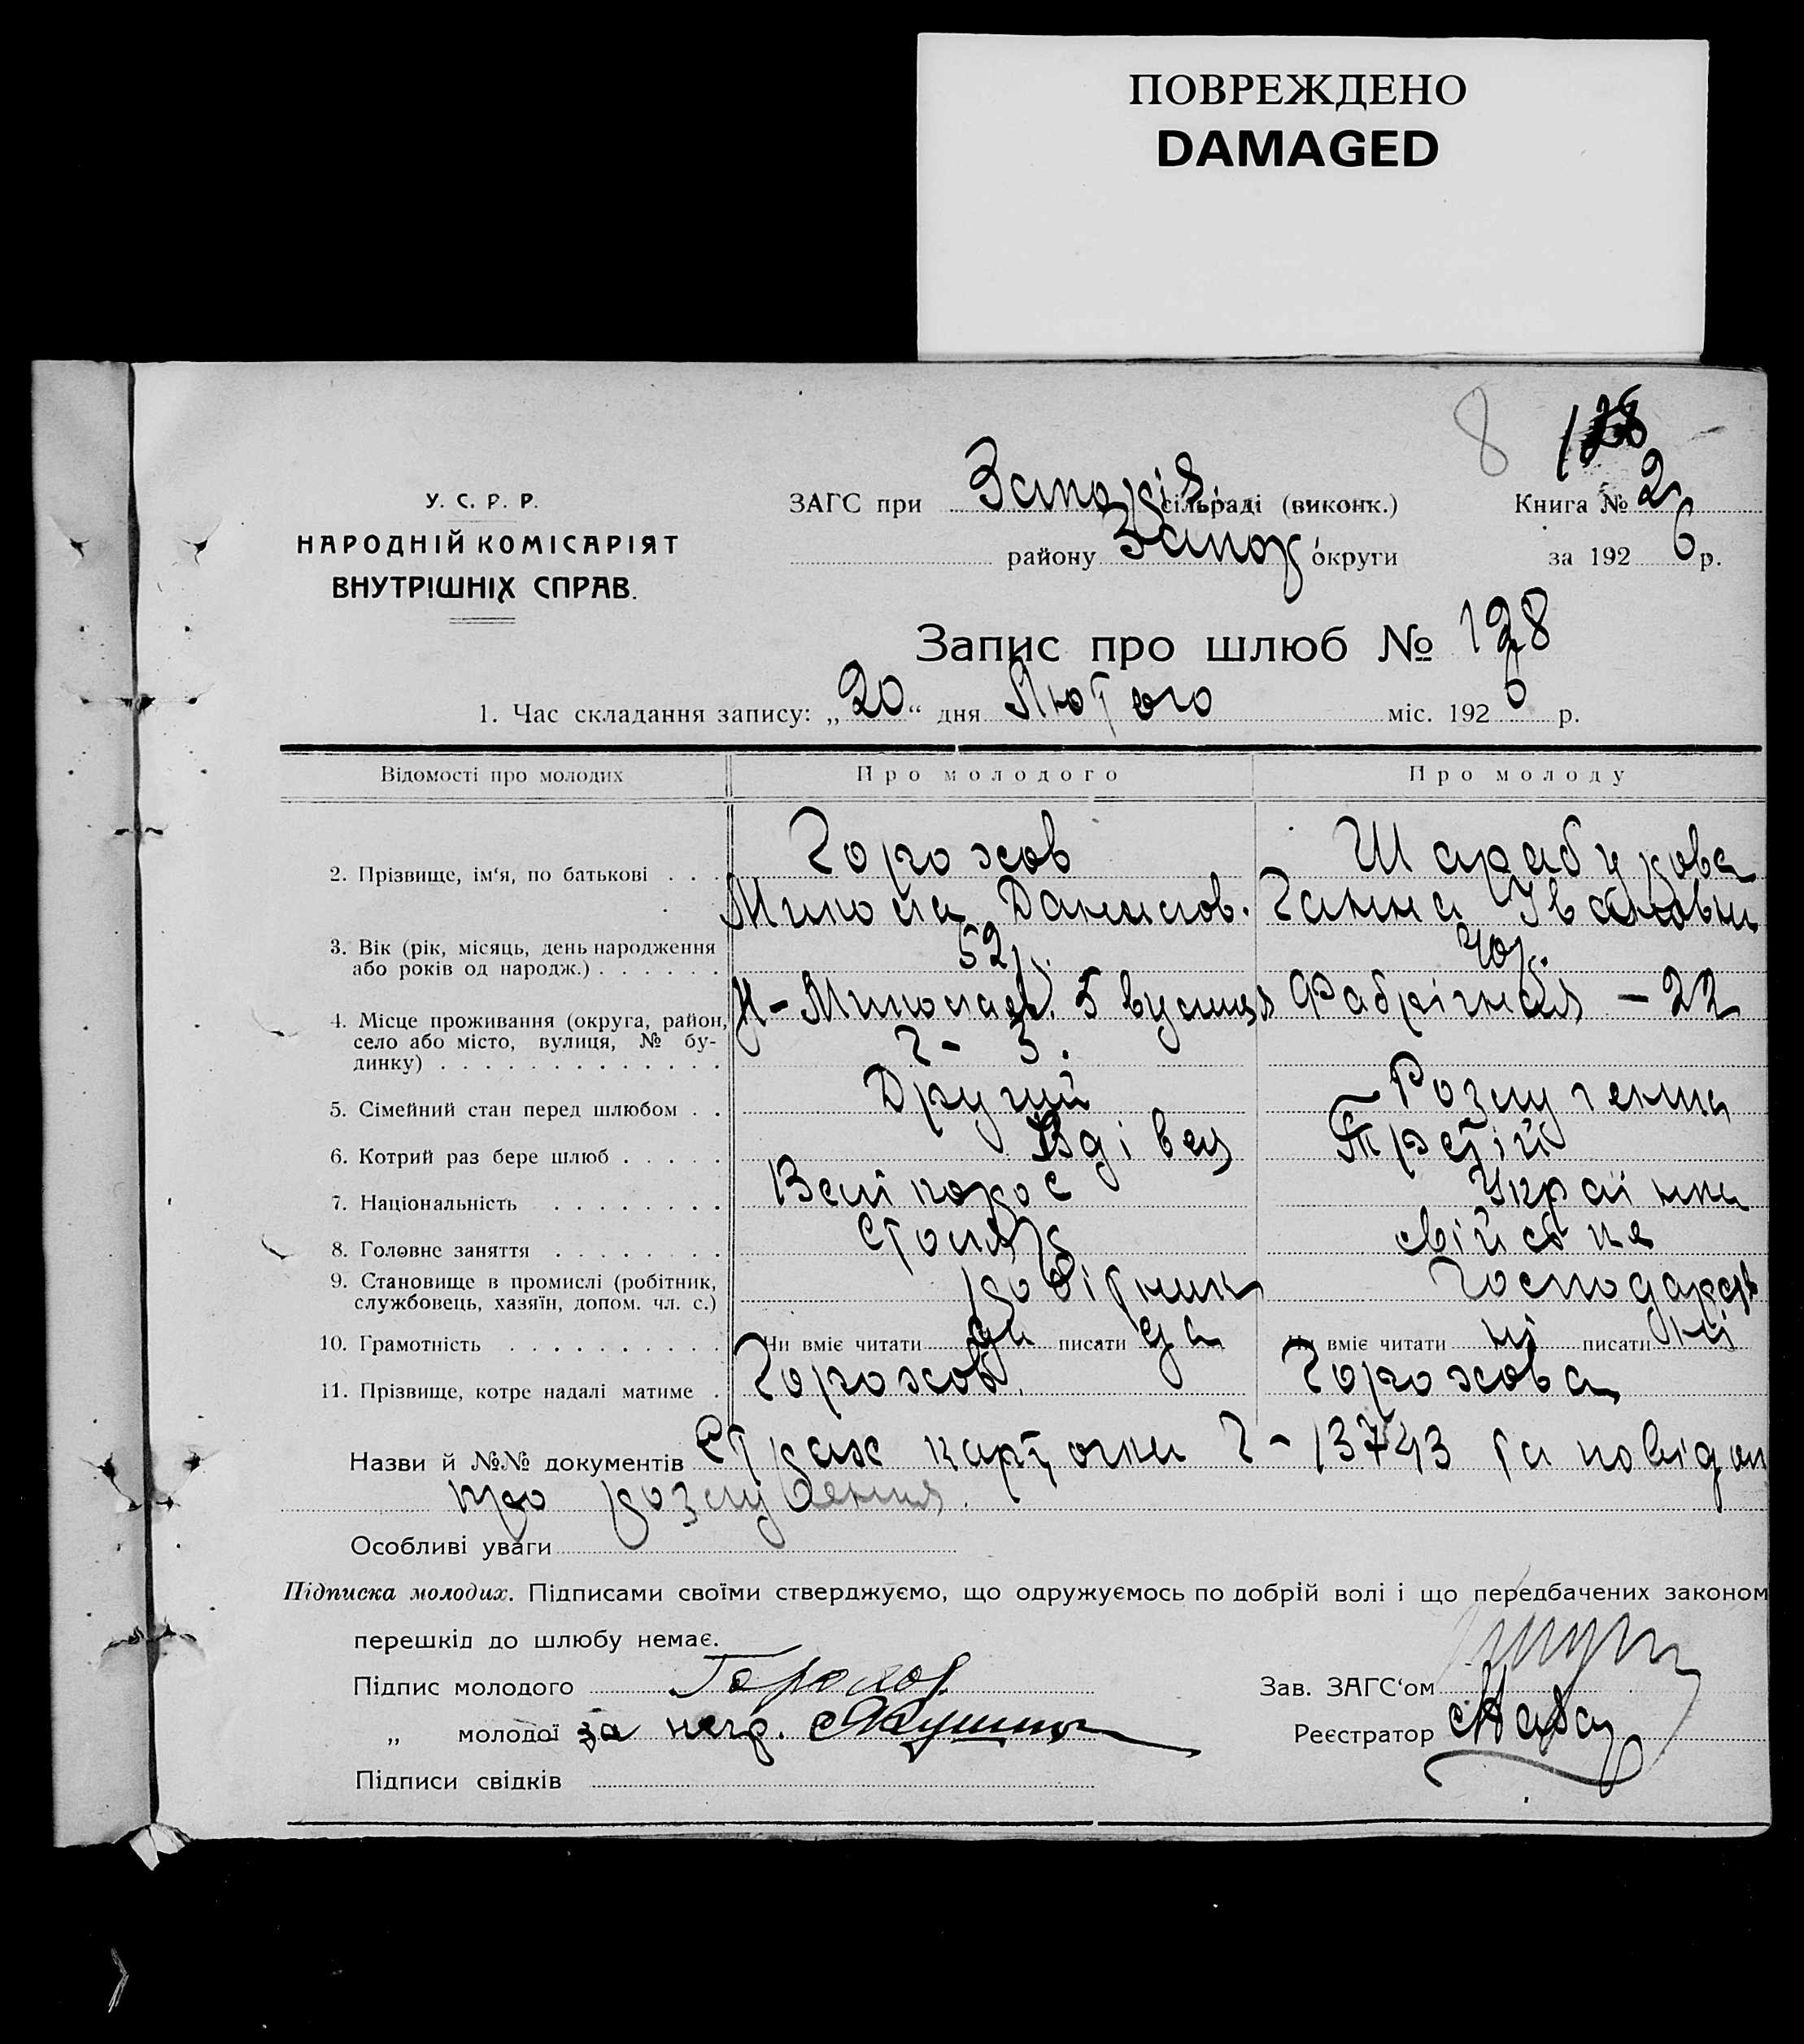 ПОВРЕЖДЕНО
DAMAGED
8 128
У. С. Р. Р.
НАРОДНІЙ КОМІСАРІЯТ
ВНУТРІШНІХ СПРАВ.
ЗАГС при Запоріз. сільраді (виконк.) Книга № 2
району Запор. округи за 1926 р.
Запис про шлюб № 128
1. Час складання запису: „20“ дня Лютого міс. 1926 р.
Відомості про молодих Про молодого Про молоду
2. Прізвище, ім‘я, по батькові . . . Горохов Шарабурова
Микола Данилов. Ганна Івановна
3. Вік (рік, місяць, день народження або років од народж.) . . . . . . 52 р. 40 р.
4. Місце проживання (округа, район, село або місто, вулиця, № будинку) . . . . . . . . . . . . . Н-Миколаєв. 5 вулиця Фабрічная - 22
Ч- 3.
5. Сімейний стан перед шлюбом . . Другий Розлученна
6. Котрий раз бере шлюб . . . . . Вдівец Третій
7. Національність . . . . . . . . Велікорос Українка
8. Головне заняття . . . . . . . . Столяр свійське
9. Становище в промислі (робітник, службовець, хазяїн, допом. чл. с.) робітник Господарств
10. Грамотність . . . . . . . . . . Чи вміє читати да писати да Чи вміє читати ні писати ні
11. Прізвище, котре надалі матиме . Горохов. Горохова
Назви й №№ документів Страх карточки Ч-13743 та повідом
про розлучення.
Особливі уваги
Підписка молодих. Підписами своїми стверджуємо, що одружуємось по добрій волі і що передбачених законом
перешкід до шлюбу немає.
Підпис молодого Горохов. Зав. ЗАГС‘ом
„ молодої за негр. Реєстратор
Підписи свідків